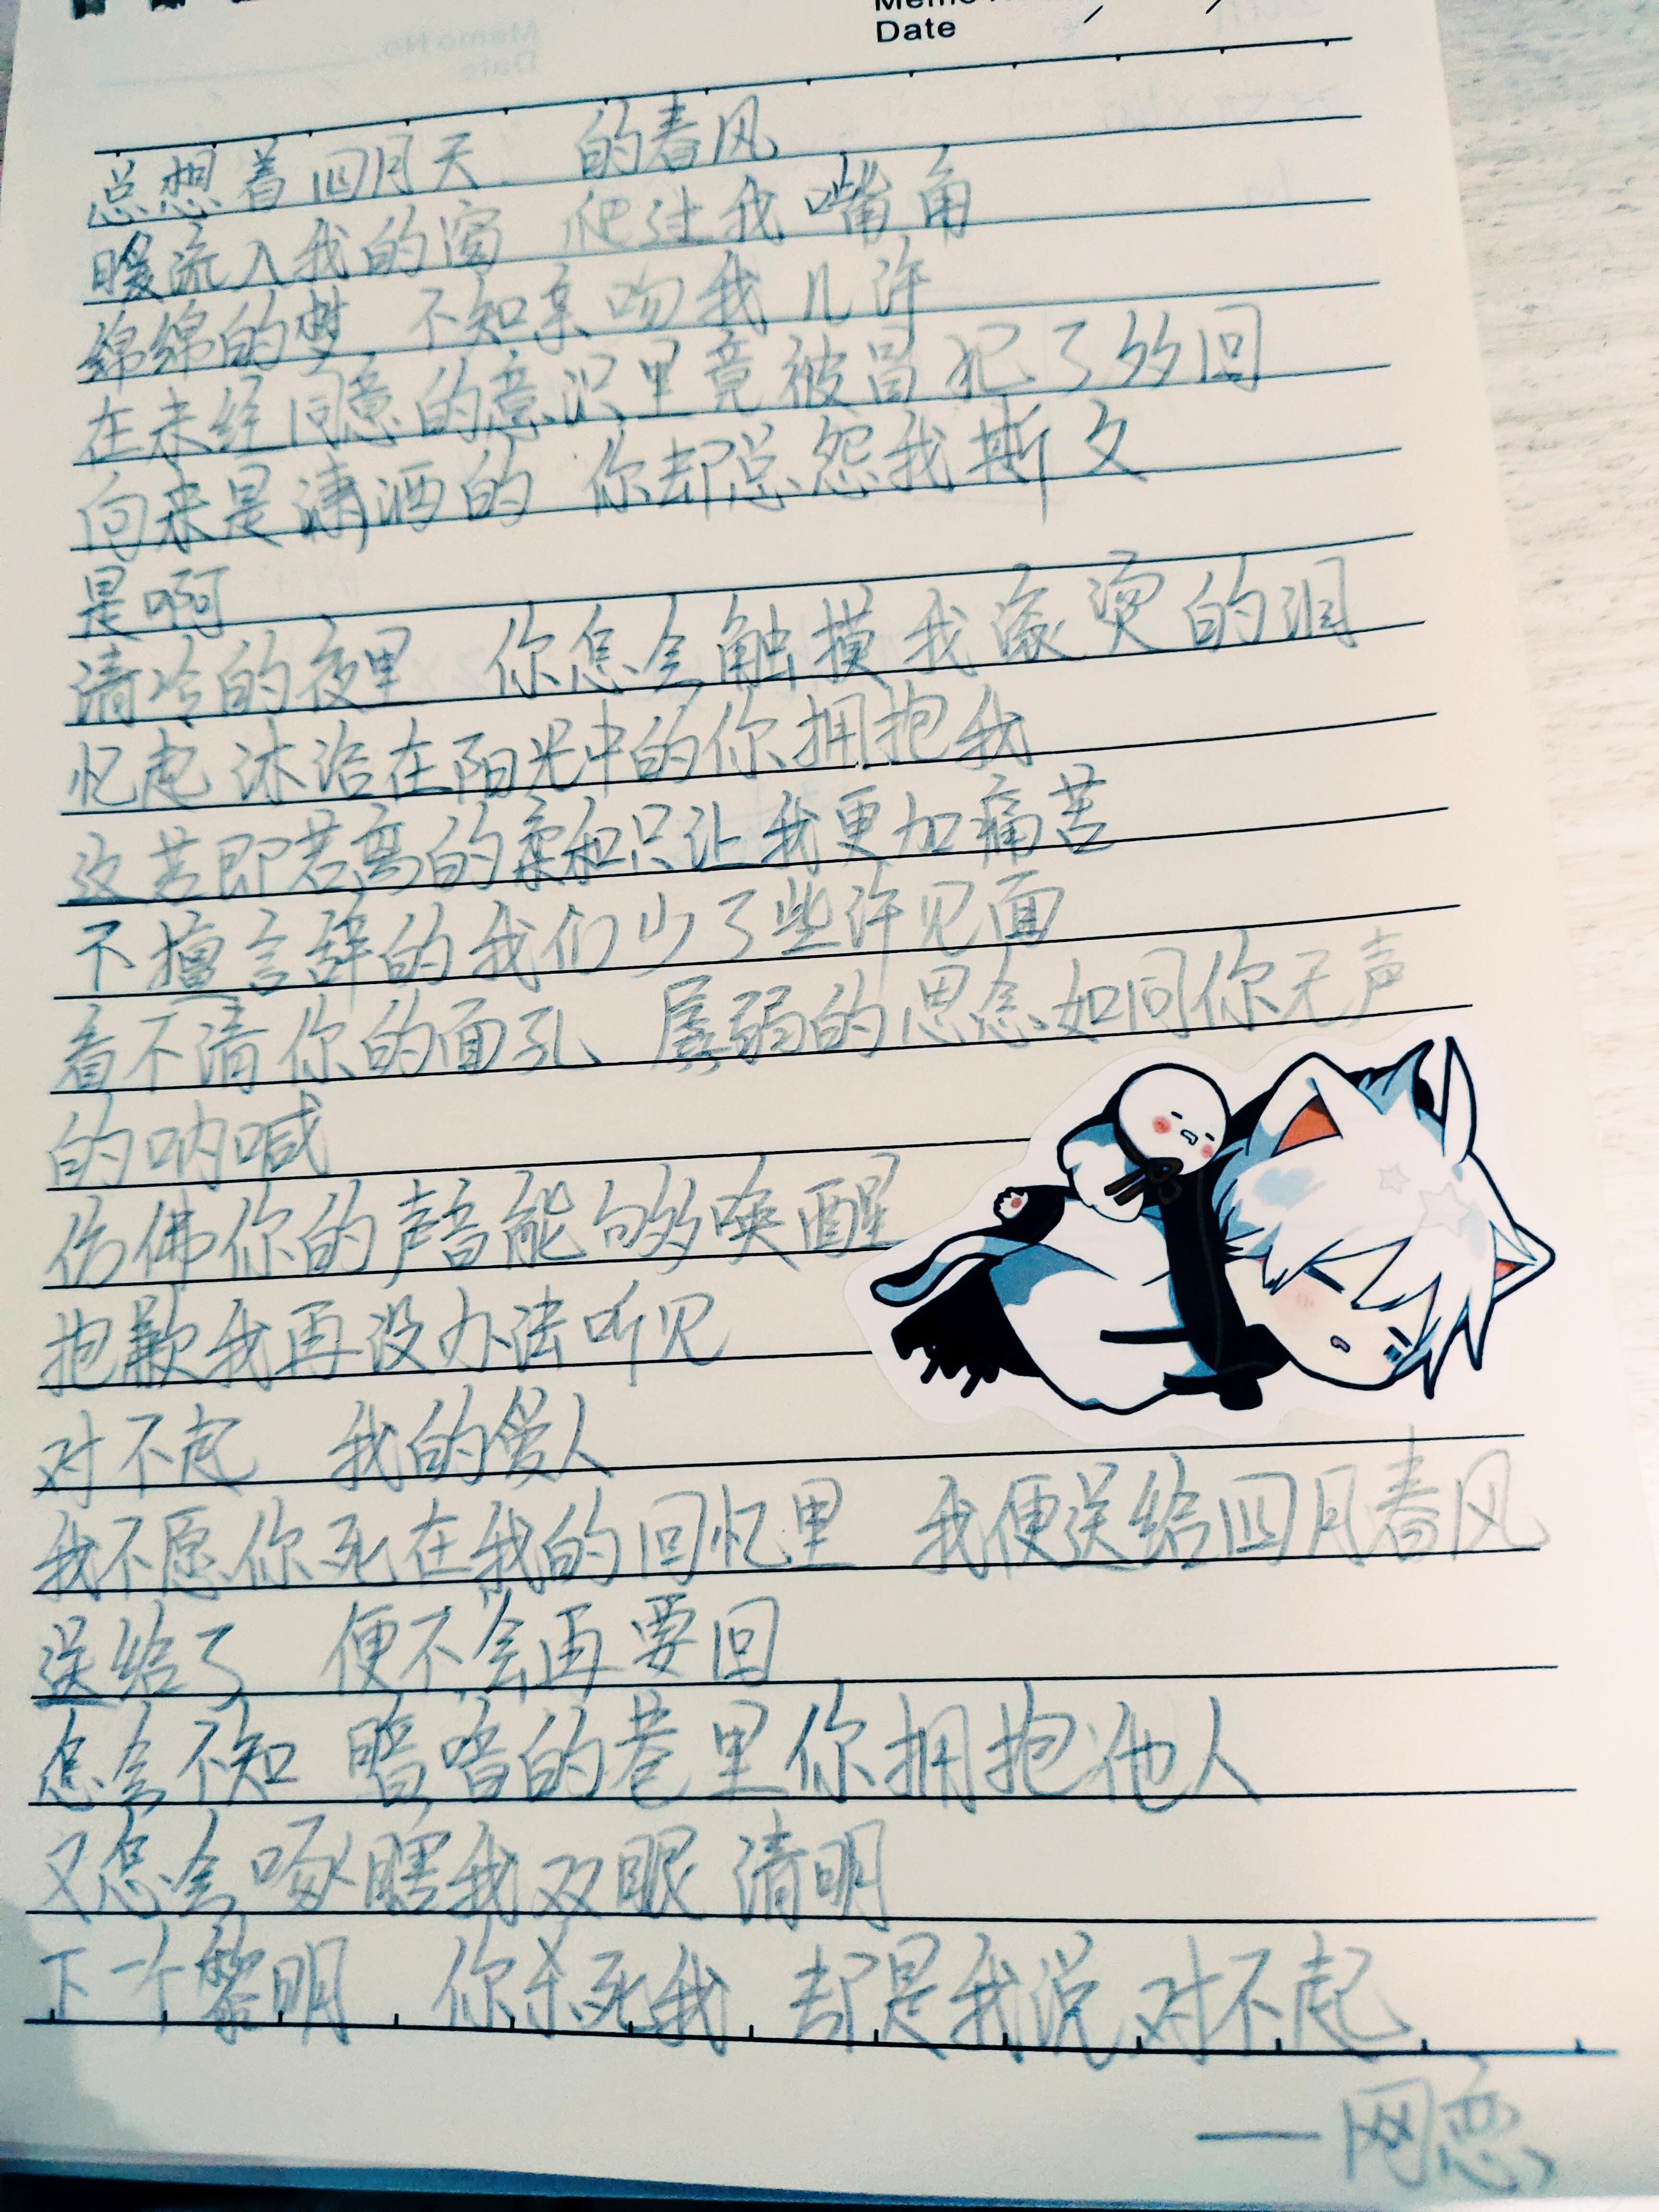 Memo No.
Date
总想着四月天 的春风
暖流入我的窗 爬过我嘴角
绵绵的梦 不知亲吻我几许
在未经同意的意识里竟被冒犯了多回
向来是潇洒的 你却总怨我斯文
是啊
清冷的夜里 你怎会触摸我滚烫的泪
忆起沐浴在阳光中的你拥抱我
这若即若离的柔和只让我更加痛苦
不擅言辞的我们少了些许见面
看不清你的面孔 孱弱的思念如同你无声
的呐喊
仿佛你的声音能够唤醒
抱歉我再没办法听见
对不起 我的爱人
我不愿你死在我的回忆里 我便送给四月春风
送给了 便不会再要回
怎会不知 暗暗的巷里你拥抱他人
又怎会啄瞎我双眼 清明
下一个黎明 你杀死我 却是我说对不起
——网恋